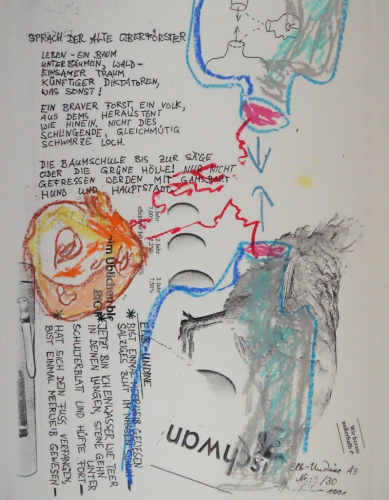 SPRACH DER ALTE OBERFÖRSTER
LEBEN - EIN BAUM
UNTER BÄUMEN, WALD-
EINSAMER TRAUM
KÜNFTIGER DIKTATOREN,
WAS SONST!
EIN BRAVER FORST, EIN VOLK,
AUS DEMS HERAUSTENT
WIE HINEIN. NICHT DIES
SCHLINGENDE, GLEICHMÜTIG
SCHWARZE LOCH.
DIE BAUMSCHULE BIS ZUR SÄGE
ODER DIE GRÜNE HÖLLE! NUR NICHT
GEFRESSEN WERDEN MIT GAMSBART
HUND UND HAUPTSTADT
1. Jahr
7,00%
2. Jahr
3. Jahr
7,50%
im Üblichen
ELB-UNDINE
BIST EINMAL MEERWEIB GEWESEN
SALZIGES BLUT IN
* JETZT BIN ICH EINWASSER WIE TEER
IN DEINEN LUNGEN, STEINE GEHN
UNTER
SCHULTERBLATT UND HÜFTE FORT -
* HAT SICH DEIN FUSS VERFANGEN,
BIST EINMAL MEERWEIB GEWESEN -
schwan
Wir beraten
außerhalb
Elb-Undine A3
/30